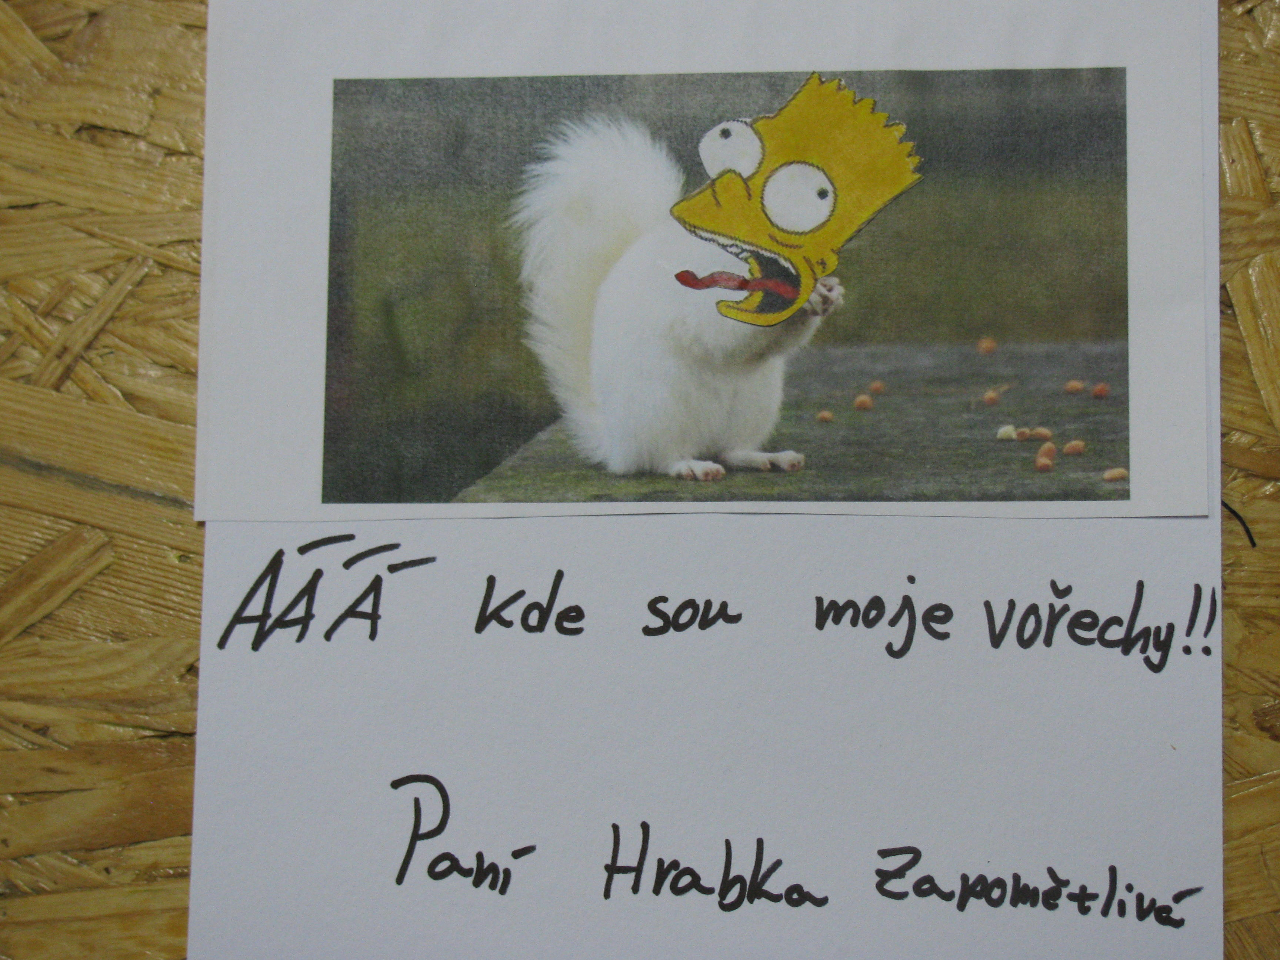 ÁÁÁ kde sou moje vořechy!!
Paní Hrabka Zapomětlivá